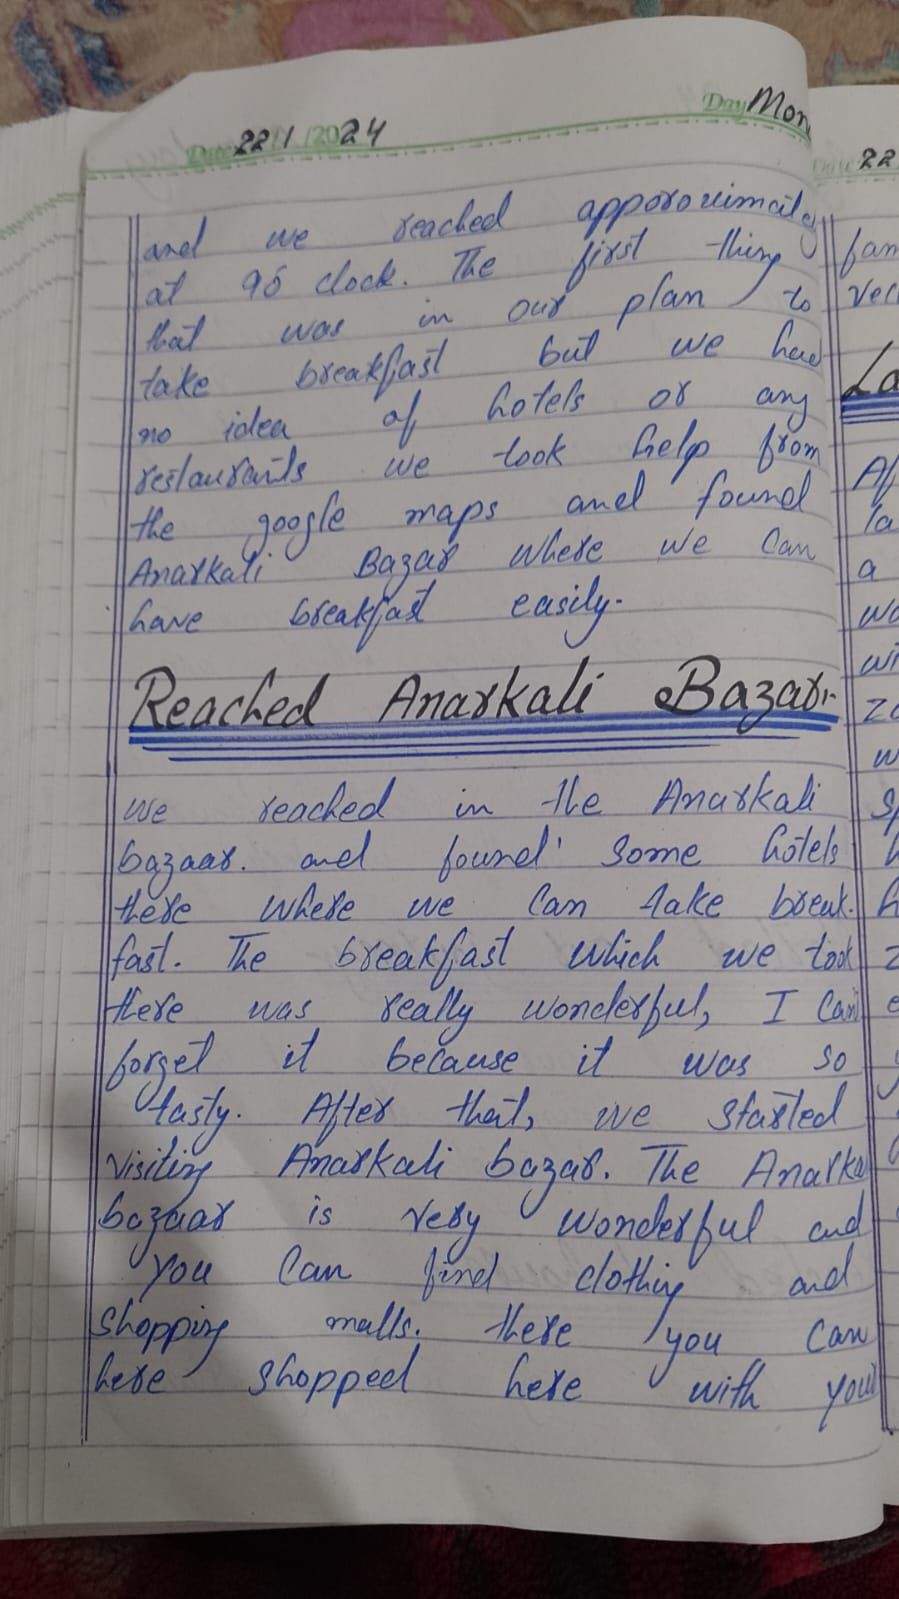 Date 22/1/2024 Day Mon
and we reached approximately
at 9o clock. The first thing
that was in our plan to
take breakfast but we had
no idea of hotels or any
restaurants we took help from
the google maps and found
Anarkali Bazar where we can
have breakfast easily.
Reached Anarkali Bazar:-
We reached in the Anarkali
bazaar. and found some hotels
there where we can take break-
fast. The breakfast which we took
there was really wonderful, I can't
forget it because it was so
tasty. After that, we started
visiting Anarkali bazar. The Anarka
bazaar is very wonderful and
you can find clothing and
shopping malls. there you can
here shopped here with your
Date 22
fam
La
Af
la
a
wi